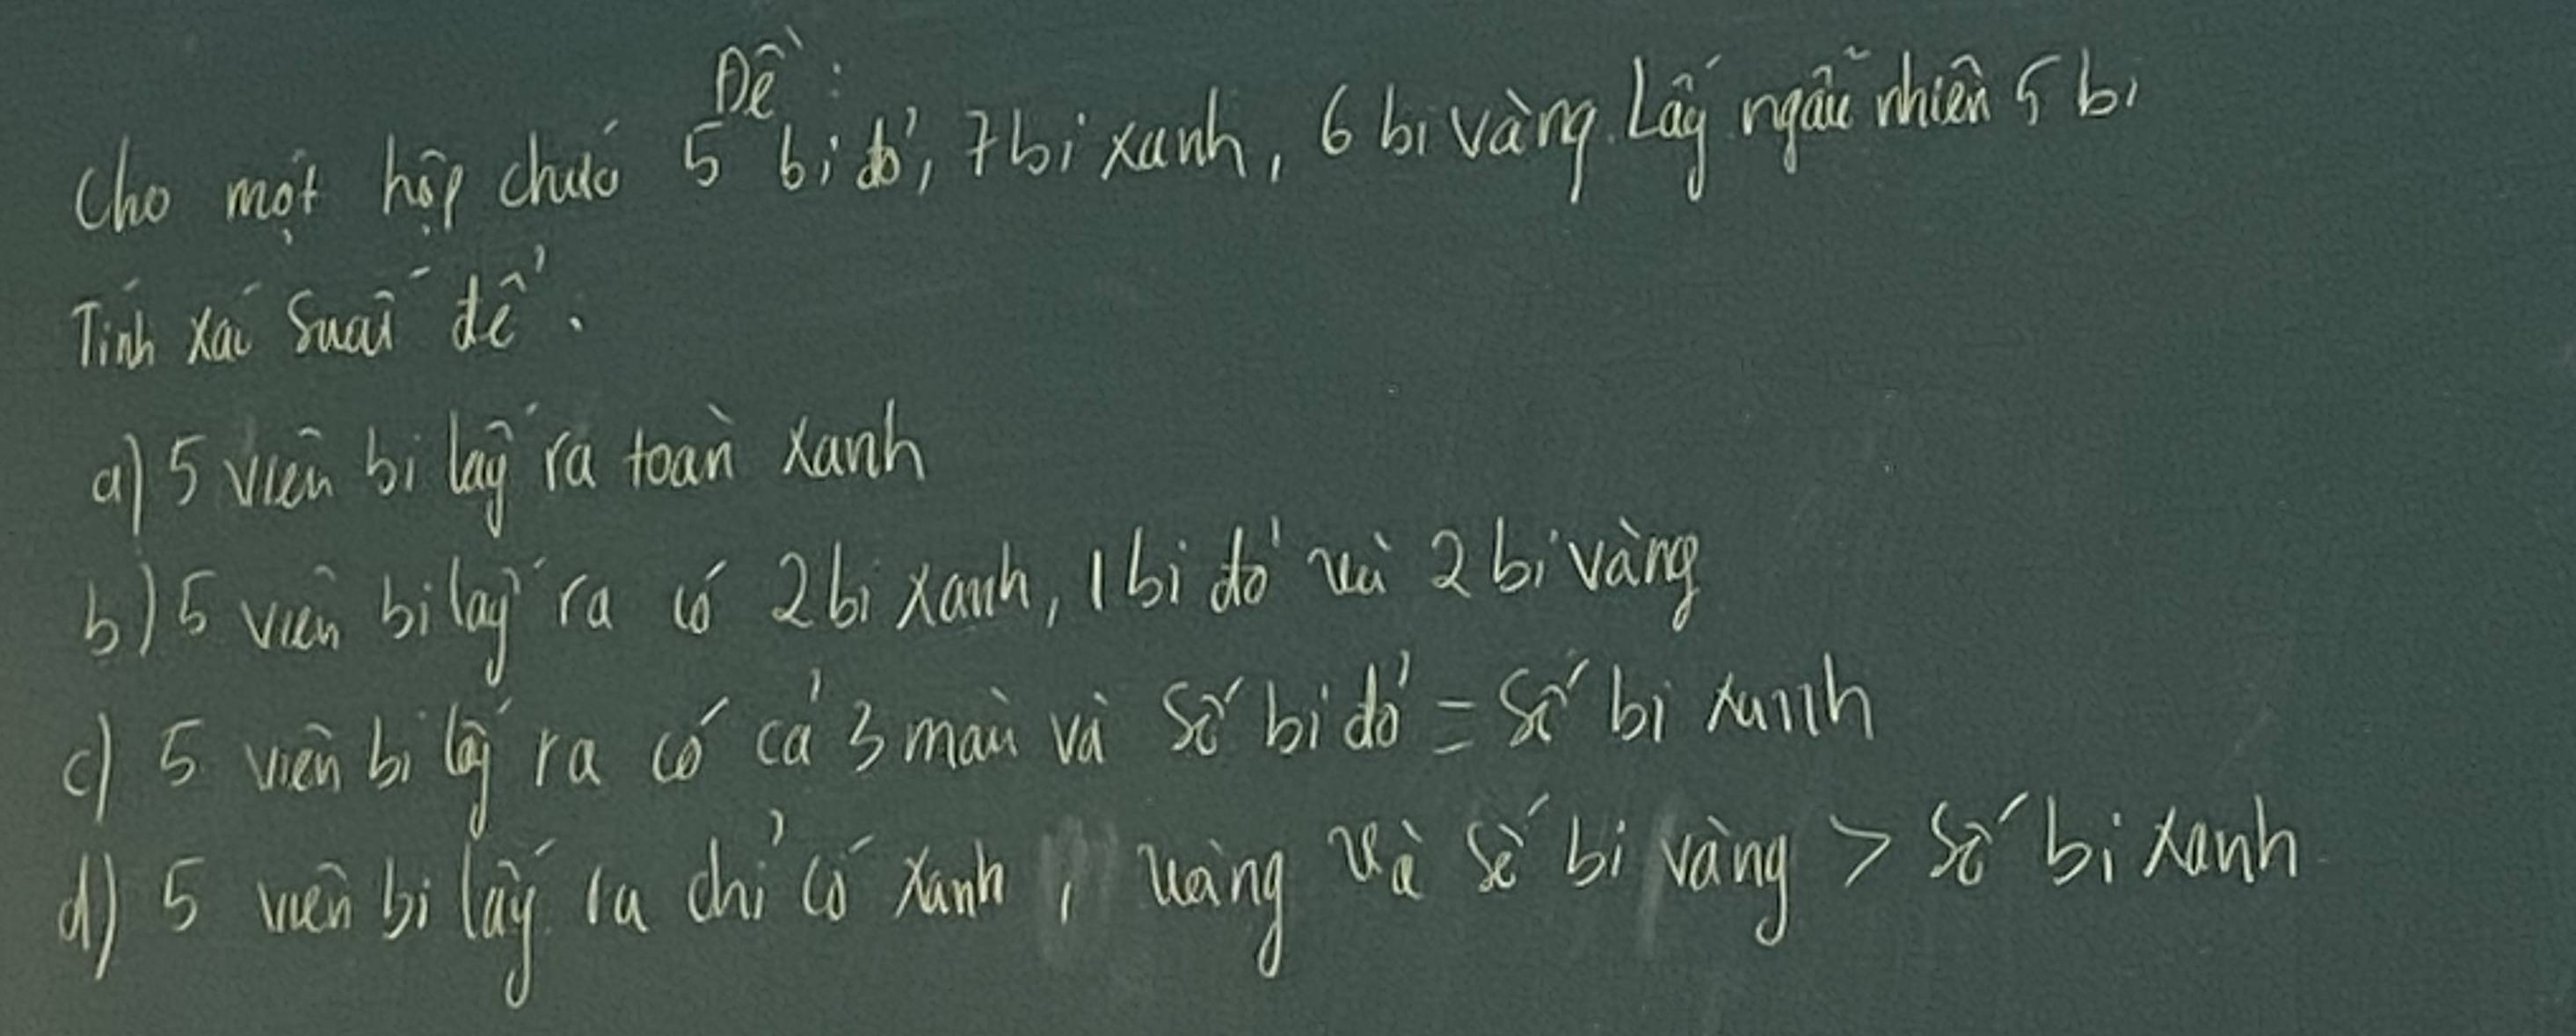 Đề:
Cho một hộp chứa 5 bi đỏ, 7 bi xanh, 6 bi vàng. Lấy ngẫu nhiên 5 bi
Tính xác suất để:
a) 5 viên bi lấy ra toàn xanh
b) 5 viên bi lấy ra có 2 bi xanh, 1 bi đỏ và 2 bi vàng
c) 5 viên bi lấy ra có cả 3 màu và số bi đỏ = số bi xanh
d) 5 viên bi lấy ra chỉ có xanh, vàng và số bi vàng > số bi xanh